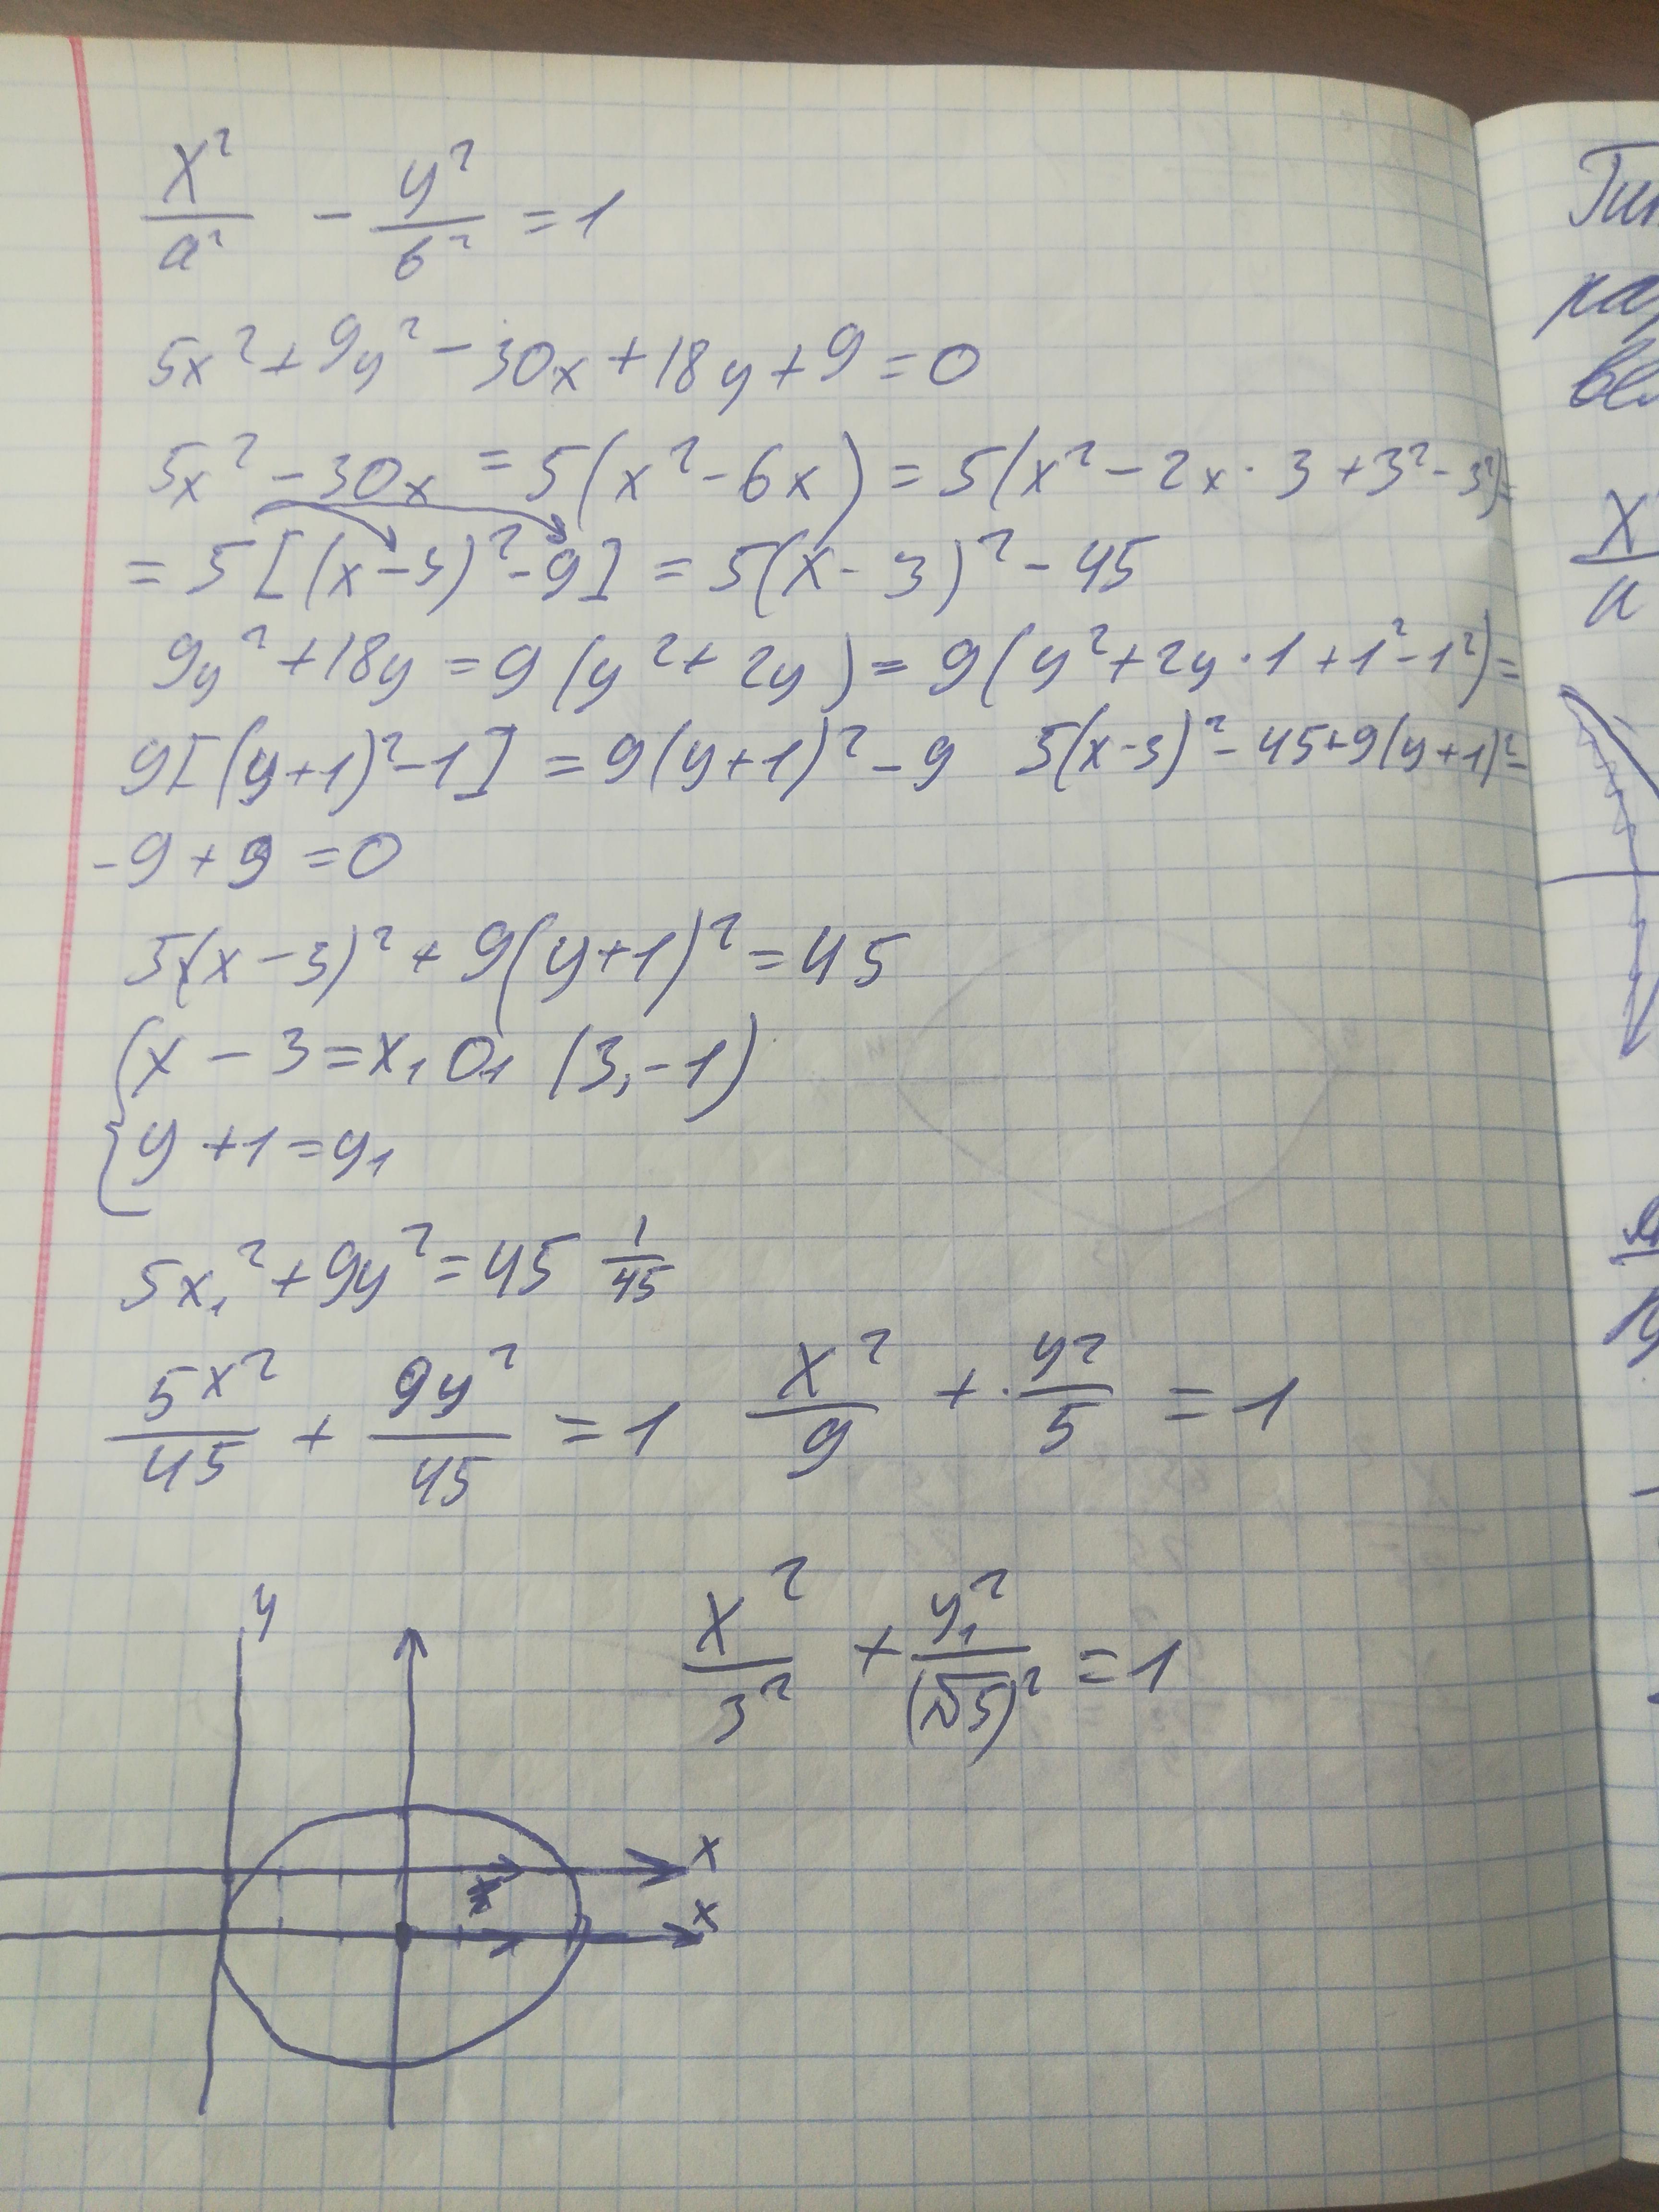 x²/a² - y²/b² = 1
5x² + 9y² - 30x + 18y + 9 = 0
5x² - 30x = 5(x² - 6x) = 5(x² - 2x · 3 + 3² - 3²) =
= 5[(x - 3)² - 9] = 5(x - 3)² - 45
9y² + 18y = 9(y² + 2y) = 9(y² + 2y · 1 + 1² - 1²) =
9[(y+1)² - 1] = 9(y+1)² - 9 5(x-3)² - 45 + 9(y+1)² -
- 9 + 9 = 0
5(x - 3)² + 9(y+1)² = 45
{x - 3 = x₁ O₁ (3, -1)
{y + 1 = y₁
5x₁² + 9y² = 45 1/45
5x²/45 + 9y²/45 = 1 x²/9 + y²/5 = 1
x²/3² + y₁²/(√5)² = 1
y
x
x